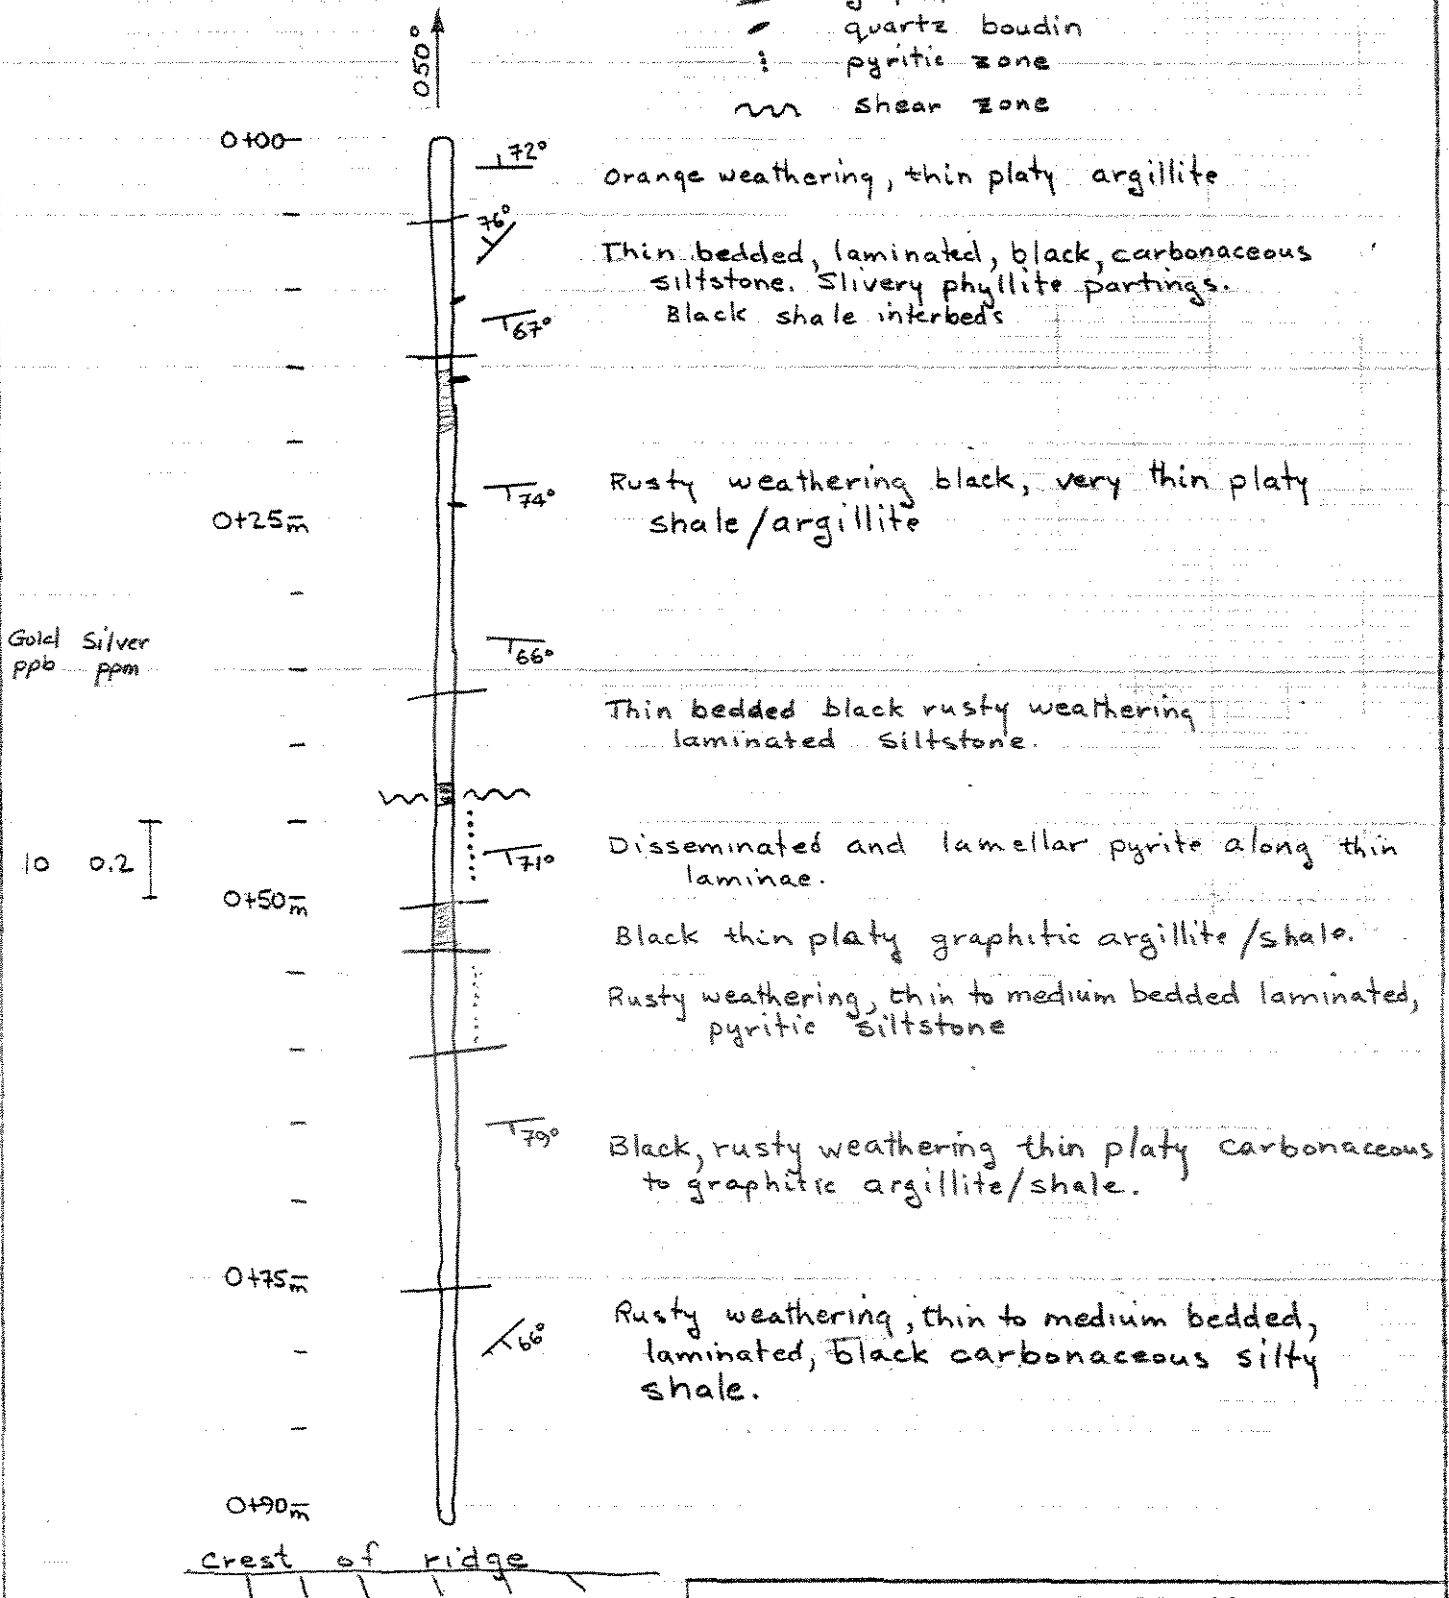 quartz boudin
pyritic zone
shear zone
050°
0+00
72°
Orange weathering, thin platy argillite
76°
Thin bedded, laminated, black, carbonaceous
siltstone. Slivery phyllite partings.
Black shale interbeds
67°
74°
Rusty weathering black, very thin platy
shale/argillite
0+25m
Gold Silver
ppb ppm
66°
Thin bedded black rusty weathering
laminated Siltstone.
10 0.2
71°
Disseminated and lamellar pyrite along thin
laminae.
0+50m
Black thin platy graphitic argillite/shale.
Rusty weathering, thin to medium bedded laminated,
pyritic siltstone
79°
Black, rusty weathering thin platy carbonaceous
to graphitic argillite/shale.
0+75m
66°
Rusty weathering, thin to medium bedded,
laminated, black carbonaceous silty
shale.
0+90m
Crest of ridge